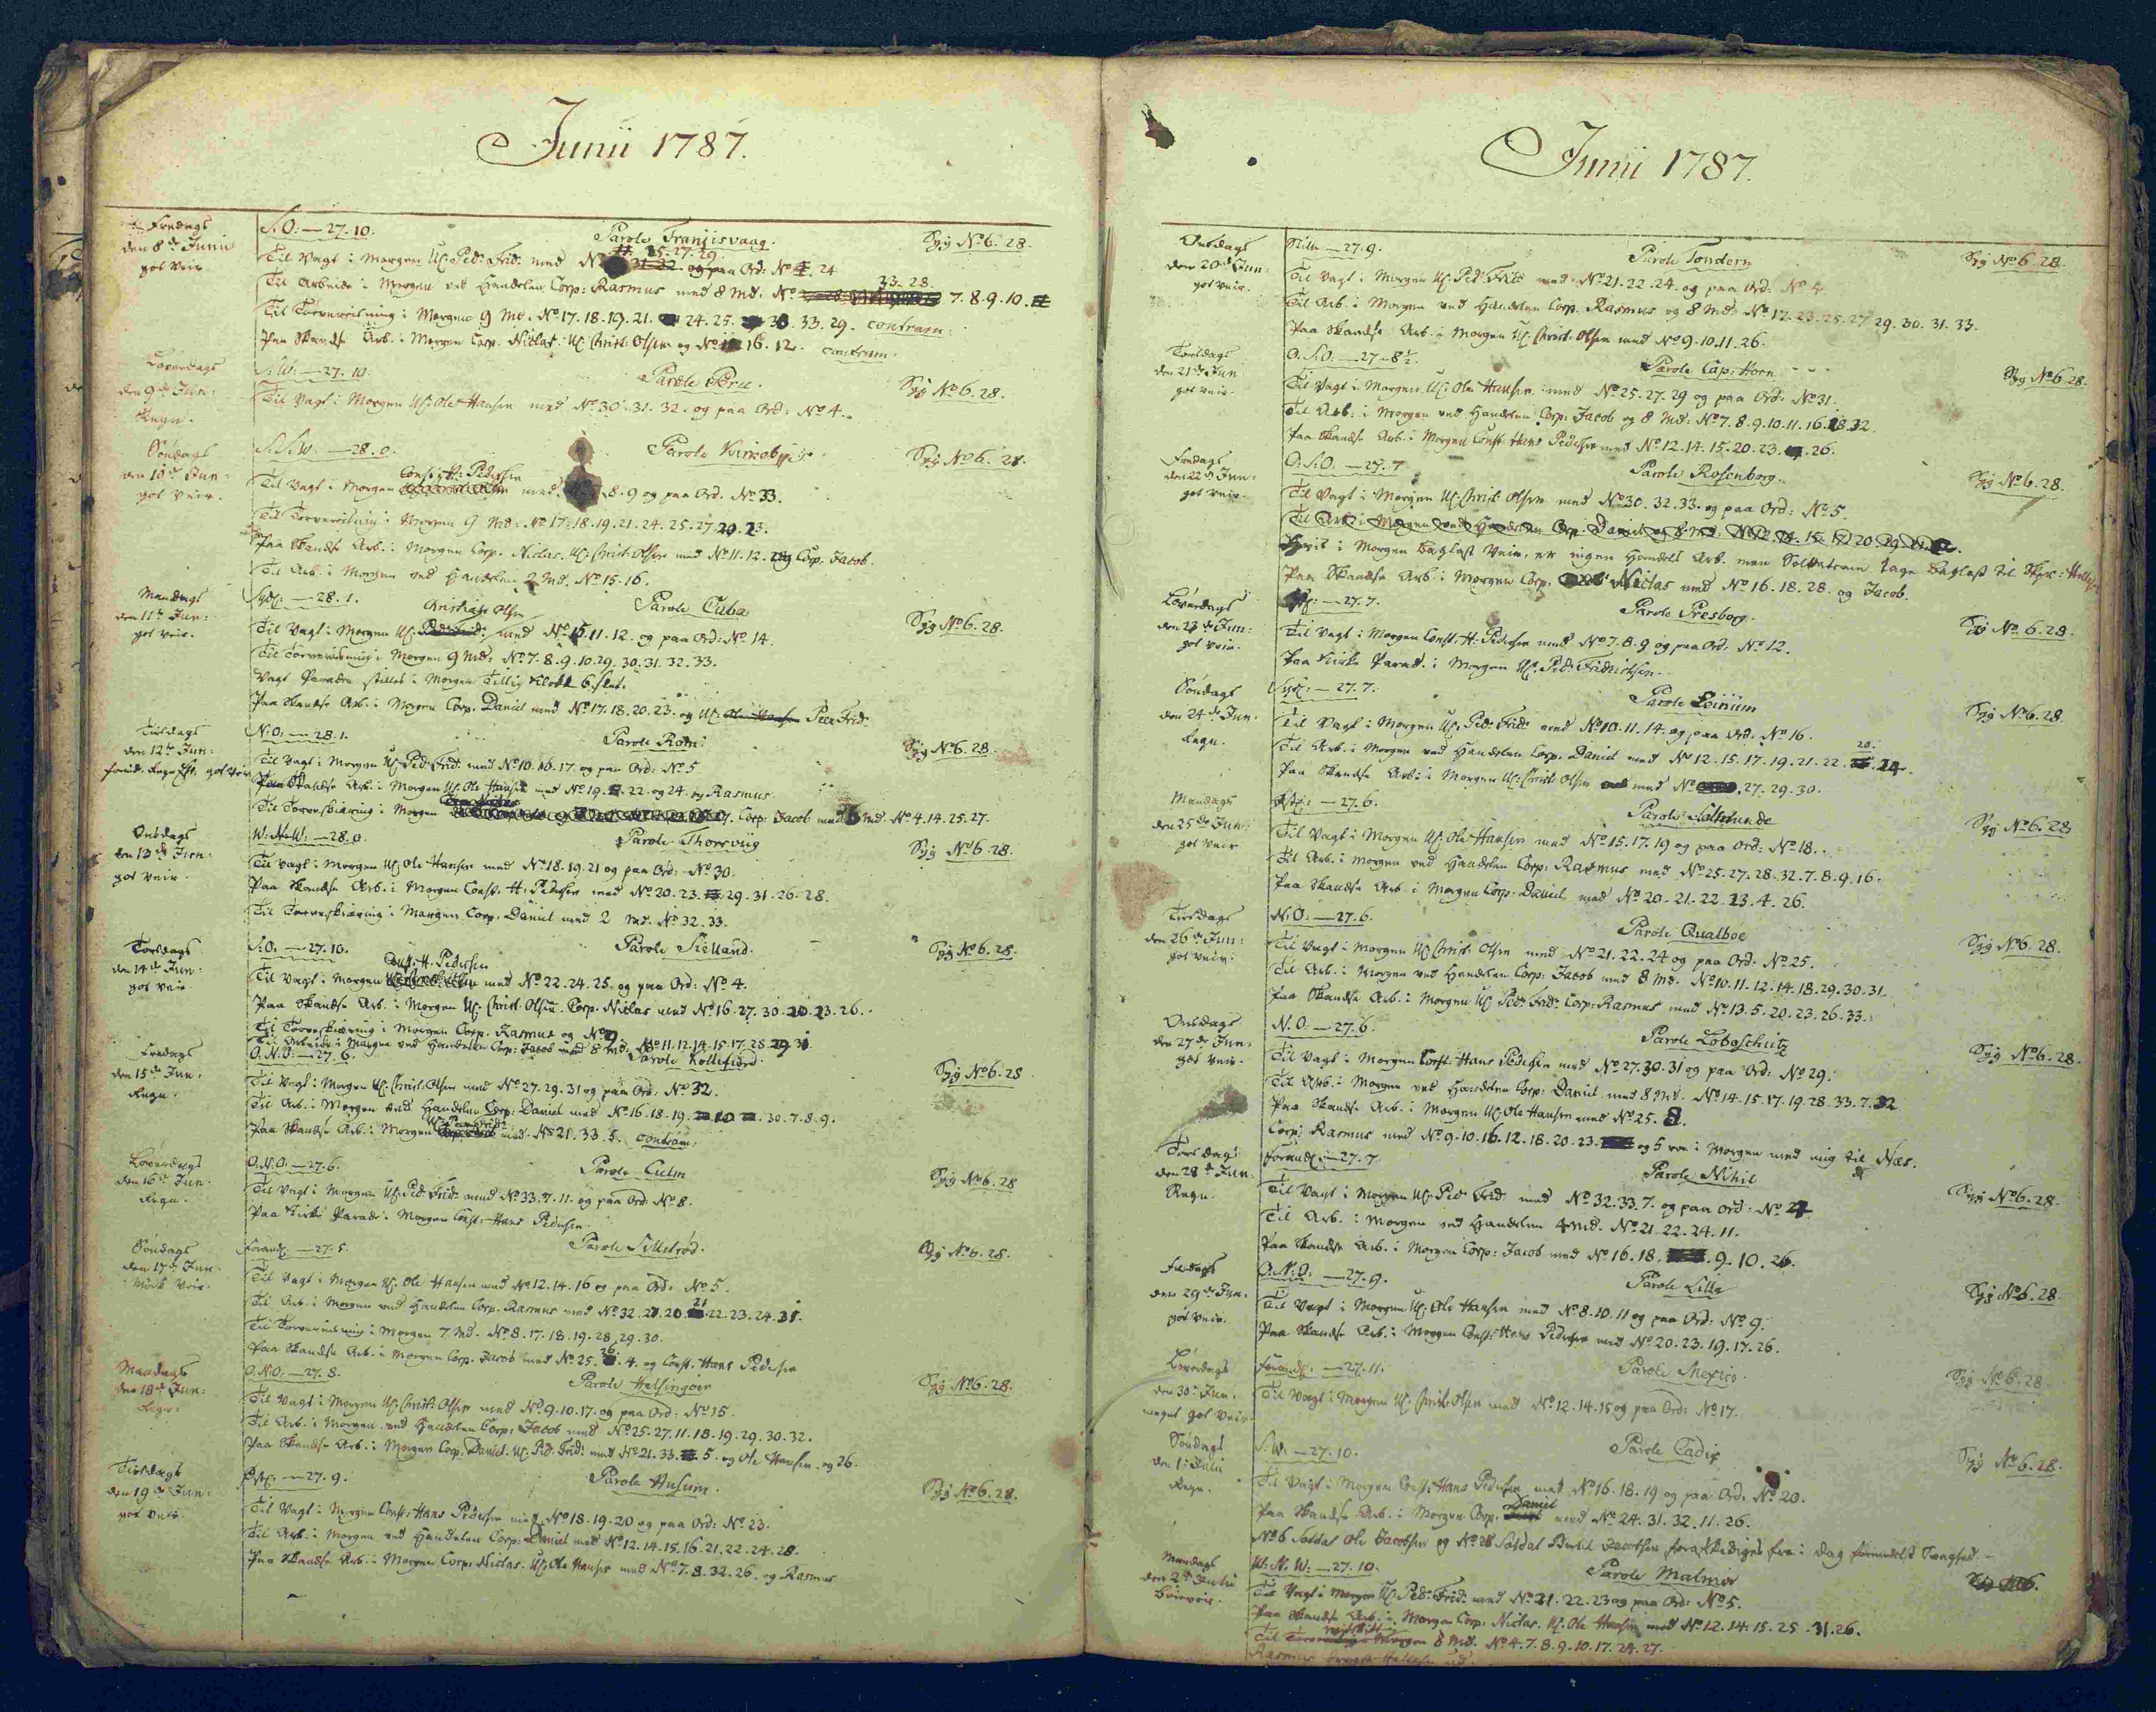 Junii 1787.
Fredags
den 8de Junii
got Veir
S.O: — 27.10.
Parole Franjisvaag.
Syg No 6. 28.
Til Vagt i Morgen Uf: Ped: Frid: med No 25. 27. 29. og paa Ord: No 24
Til Arbeide i Morgen ved Handelen Corp: Rasmus med 8 Md. No 23. 28. 7. 8. 9. 10.
Til Torvereisning i Morgen 9 Md. No 17. 18. 19. 21. 24. 25. 33. 29. contram:
Paa Skandse Arb. i Morgen Corp. Niclas. Uf. Christ: Olsen og No 16. 12. contram.
Løverdags
den 9de Jun:
Regn.
S.W: — 27. 10.
Parole Peru.
Syg No 6. 28.
Til Vagt i Morgen Uf: Ole Hansen med No 30. 31. 32. og paa Ord: No 4.
Søndags
den 10de Jun:
got Veir.
S.S.W. — 28. 0.
Parole Kirkebye
Syg No 6. 28.
Til Vagt i Morgen Const: H: Pedersen med 8. 9 og paa Ord. No 33.
Til Torvereisning i Morgen 9 Md: No 17. 18. 19. 21. 24. 25. 27. 29. 23.
Paa Skandse Arb. i Morgen Corp. Niclas. Uf. Christ: Olsen med No 11. 12. og Corp. Jacob.
Til Arb. i Morgen ved Handelen 2 Md. No 15. 16.
Mandags
den 11te Jun:
got Veir.
Syd: — 28. 1.
Parole Cuba
Syg No 6. 28.
Til Vagt i Morgen Uf. Christian Olsen med No 15. 11. 12. og paa Ord: No 14.
Til Torvereisning i Morgen 9 Md. No 7. 8. 9. 10. 29. 30. 31. 32. 33.
Vagt Paraden stilles i Morgen Tillig Klokk 6 Slet.
Paa Skandse Arb. i Morgen Corp. Daniel med No 17. 18. 20. 23. og Uf. Ole Hansen Peer Frid:
Tiisdags
den 12te Jun:
N.O: — 28. 1.
Parole Rom:
Syg No 6. 28.
Til Vagt i Morgen Uf. Ped: Frid: med No 10. 16. 17. og paa Ord: No 5
Paa Skandse Arb. i Morgen Uf. Ole Hansen med No 19. 22. og 24. og Rasmus.
Til Torveskiæring i Morgen Corp: Jacob med Md. No 4. 14. 25. 27.
Onsdags
den 13de Jun:
got Veir.
W: N.W: — 28. 0.
Parole Thorsviig
Syg No 6. 28.
Til Vagt i Morgen Uf. Ole Hansen med No 18. 19. 21 og paa Ord: No 30.
Paa Skandse Arb. i Morgen Const. H: Pedersen med No 20. 23. 29. 31. 26. 28.
Til Torveskiæring i Morgen Corp. Daniel med 2 Md. No 32. 33.
Torsdags
den 14de Jun:
got Veir
S.O. — 27. 10.
Parole Sielland.
Syg No 6. 28.
Til Vagt i Morgen Const. H. Pedersen med No 22. 24. 25. og paa Ord: No 4.
Paa Skandse Arb. i Morgen Uf. Christ. Olsen. Corp. Niclas med No 16. 27. 30. 20. 23. 26.
Til Torveskiæring i Morgen Corp. Rasmus og No 9
Til Arbeide i Morgen ved Handelen Corp: Jacob med 8 Md. No 11. 12. 14. 15. 17. 28. 29. 31.
Fredags
den 15de Jun:
Regn.
O.N.O: — 27. 6.
Parole Kollefiord.
Syg No 6. 28
Til Vagt i Morgen Uf. Christ. Olsen med No 27. 29. 31 og paa Ord: No 32.
Til Arb. i Morgen ved Handelen Corp: Daniel med No 16. 18. 19. 10. 30. 7. 8. 9.
Paa Skandse Arb. i Morgen med No 21. 33. 5. contram.
Løverdags
den 16de Jun:
Regn.
O.N.O: — 27. 6.
Parole Culm
Syg No 6. 28
Til Vagt i Morgen Uf. Ped. Frid: med No 33. 7. 11. og paa Ord: No 8.
Paa Kirke Parade i Morgen Const: Hans Pedersen.
Søndags
den 17de Jun
Mørk Veir.
Parole Selletrød.
Syg No 6. 28.
Til Vagt i Morgen Uf. Ole Hansen med No 12. 14. 16 og paa Ord: No 5.
Til Arb. i Morgen ved Handelen Corp. Rasmus med No 32. 27. 20. 21 22. 23. 24. 31.
Til Torvereisning i Morgen 7 Md. No 8. 17. 18. 19. 28. 29. 30.
Paa Skandse Arb. i Morgen Corp. Jacob med No 25. 26. 4. og Const. Hans Pedersen
Mandags
den 18de Jun:
Regn:
O.N.O: — 27. 8.
Parole Helsingöer
Syg No 6. 28.
Til Vagt i Morgen Uf. Christ: Olsen med No 9. 10. 17. og paa Ord: No 15.
Til Arb. i Morgen ved Handelen Corp: Jacob med No 25. 27. 11. 18. 19. 29. 30. 32.
Paa Skandse Arb. i Morgen Corp. Daniel. Uf. Ped. Frid: med No 21. 33. 5. og Ole Hansen. og 26.
Tiisdags
den 19de Jun:
got Veir.
Parole Husum.
Syg No 6. 28.
Til Vagt i Morgen Const: Hans Pedersen med No 18. 19. 20 og paa Ord: No 23.
Til Arb. i Morgen ved Handelen Corp: Daniel med No 12. 14. 15. 16. 21. 22. 24. 28.
Paa Skandse Arb. i Morgen Corp: Niclas. Uf. Ole Hansen med No 7. 8. 32. 26. og Rasmus
Junii 1787.
Onsdags
den 20de Jun:
got Veir.
Stille — 27. 9.
Parole Tondern
Syg No 6. 28.
Til Vagt i Morgen Uf. Ped: Frid: med No 21. 22. 24. og paa Ord: No 4
Til Arb. i Morgen ved Handelen Corp. Rasmus og 8 Md: No 17. 23. 25. 27 29. 30. 31. 33.
Paa Skandse Arb. i Morgen Uf. Christ. Olsen med No 9. 10. 11. 26.
Torsdags
den 21de Jun
got Veir.
O. S.O: — 27 - 8½.
Parole Cap: Horn
Syg No 6. 28.
Til Vagt i Morgen Uf: Ole Hansen med No 25. 27. 29 og paa Ord: No 31.
Til Arb: i Morgen ved Handelen Corp: Jacob og 8 Md: No 7. 8. 9. 10. 11. 16. 28. 32.
Paa Skandse Arb. i Morgen Const. Hans Pedersen med No 12. 14. 15. 20. 23. 26.
Fredags
den 22de Jun:
got Veir.
O. S.O. — 27. 7
Parole Rosenborg.
Syg No 6. 28.
Til Vagt i Morgen Uf. Christ: Olsen med No 30. 32. 33. og paa Ord: No 5.
Til Arb. i Morgen ved Handelen Corp. Daniel og 8 Md.
Hvis i Morgen Baglast Veir, er ingen Handels Arb. men tage Baglast til
Paa Skandse Arb. i Morgen Corp. Niclas med No 16. 18. 28. og Jacob.
Løverdags
den 23de Jun:
got Veir.
— 27. 7.
Parole Presborg.
Syg No 6. 28.
Til Vagt i Morgen Const: H: Pedersen med No 7. 8. 9 og paa Ord: No 12.
Paa Kirke Parad: i Morgen Uf. Ped: Fridrichsen.
Søndags
den 24de Jun:
Regn.
Syd: — 27. 7.
Parole Leinium
Syg No 6. 28
Til Vagt i Morgen Uf. Ped: Frid: med No 10. 11. 14. og paa Ord: No 16.
Til Arb. i Morgen ved Handelen Corp. Daniel med No 12. 15. 17. 19. 21. 22. 20. 24.
Paa Skandse Arb: i Morgen Uf: Christ: Olsen med No 27. 29. 30.
Mandags
den 25de Jun:
got Veir
— 27. 6.
Syg No 6. 28
Til Vagt i Morgen Uf. Ole Hansen med No 15. 17. 19 og paa Ord: No 18.
Til Arb. i Morgen ved Handelen Corp: Rasmus med No 25. 27. 28. 32. 7. 8. 9. 16.
Paa Skandse Arb. i Morgen Corp: Daniel med No 20. 21. 22. 23. 4. 26.
Tiisdags
den 26de Jun:
got Veir.
N.O: — 27. 6.
Parole Qualboe
Syg No 6. 28.
Til Vagt i Morgen Uf. Christ. Olsen med No 21. 22. 24 og paa Ord: No 25.
Til Arb. i Morgen ved Handelen Corp: Jacob med 8 Md. No 10. 11. 12. 14. 18. 29. 30. 31.
Paa Skandse Arb. i Morgen Uf. Ped: Frid: Corp: Rasmus med No 13. 5. 20. 23. 26. 33.
Onsdags
den 27de Jun:
got Veir.
N. O: — 27. 6.
Parole Loboschutz
Syg No 6. 28.
Til Vagt i Morgen Const. Hans Pedersen med No 27. 30. 31 og paa Ord: No 29.
Til Arb. i Morgen ved Handelen Corp: Daniel med 8 Md. No 14. 15. 17. 19. 28. 33. 7. 32
Paa Skandse Arb. i Morgen Uf: Ole Hansen med No 25. 8.
Corp: Rasmus med No 9. 10. 16. 12. 18. 20. 23. og 5 roe i Morgen med mig til Næs.
Torsdags
den 28de Jun
Regn.
— 27. 7
Parole Nihil
Syg No 6. 28.
Til Vagt i Morgen Uf. Ped Frid: med No 32. 33. 7. og paa Ord: No 24
Til Arb. i Morgen ved Handelen 4 Md. No 21. 22. 24. 11.
Paa Skandse Arb. i Morgen Corp: Jacob med No 16. 18. 9. 10. 26.
Fredags
den 29de Jun:
got Veir.
O. N: O: — 27. 9.
Parole Lille
Syg No 6. 28
Til Vagt i Morgen Uf. Ole Hansen med No 8. 10. 11 og paa Ord: No 9.
Paa Skandse Arb. i Morgen Const: Hans Pedersen med No 20. 23. 19. 17. 26.
Løverdags
den 30: Jun.
meget got Veir.
— 27. 11.
Parole Mexico.
Syg No 6. 28
Til Vagt i Morgen Uf. Christ: Olsen med No 12. 14. 15 og paa Ord: No 17.
Søndags
den 1: Julii
Regn.
S.W: — 27. 10.
Parole Cadix
Syg No 6. 28.
Til Vagt i Morgen Const. Hans Pedersen med No 16. 18. 19 og paa Ord. No 20.
Paa Skandse Arb. i Morgen Corp. Daniel med No 24. 31. 32. 11. 26.
No 6 Soldat Ole Jacobsen og No 28 Soldat Bertel Jacobsen forafskediges fra i Dag formedelst Svaghed.
Mandags
den 2de Julii
W. N. W: — 27. 10.
Parole Malmø
Til Vagt i Morgen Uf. Ped: Frid: med No 21. 22. 23 og paa Ord: No 5.
Paa Skandse Arb. i Morgen Corp: Niclas. Uf. Ole Hansen med No 12. 14. 15. 25. 31. 26.
Til Morgen 8 Md. No 4. 7. 8. 9. 10. 17. 24. 27.
Rasmus